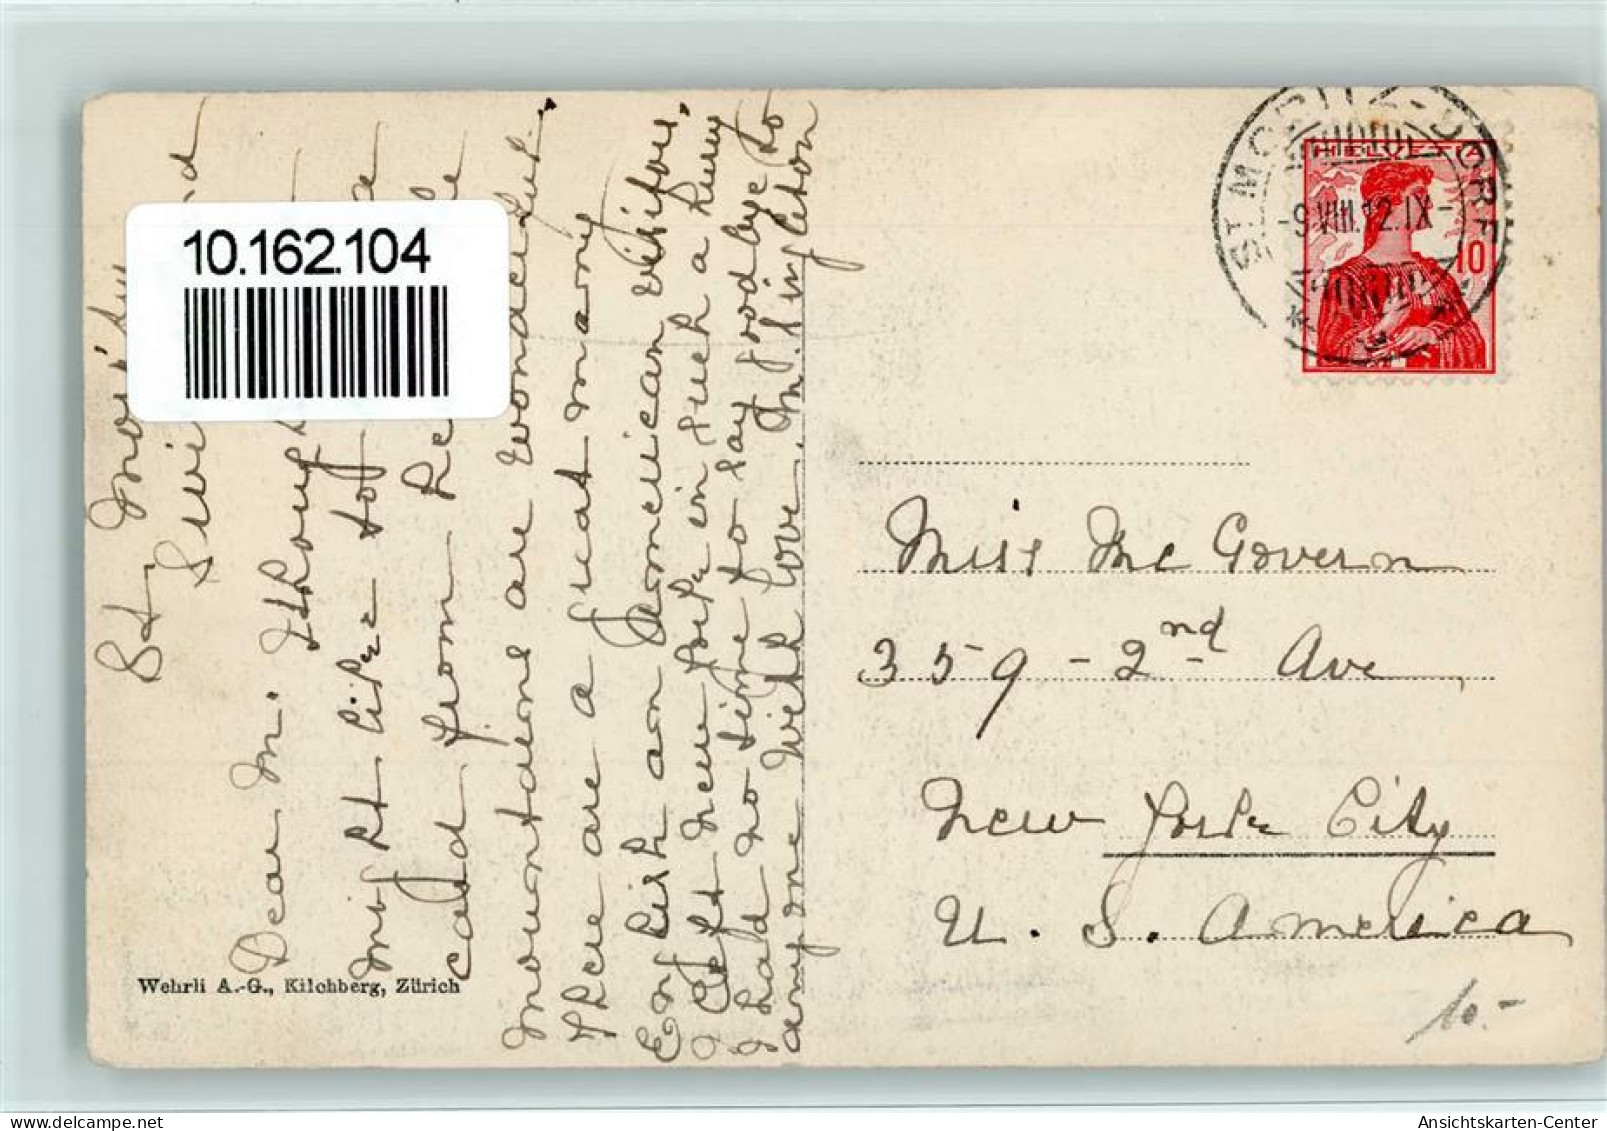 10.162.104
St. Moritz
Dear M. Thought
might like to
card from
mountains are wonderful.
There are a great many
English an American visitors.
I left New York in such a hurry
I had no time to say goodbye to
anyone With love. M. Singleton
Wehrli A.-G., Kilchberg, Zürich
ST. MORITZ-DORF
-9.VIII.12.IX-
HELVETIA
10
Miss Mc Govern
359 - 2nd Ave
New York City
U. S. America
10.-
delcampe.net
Ansichtskarten-Center